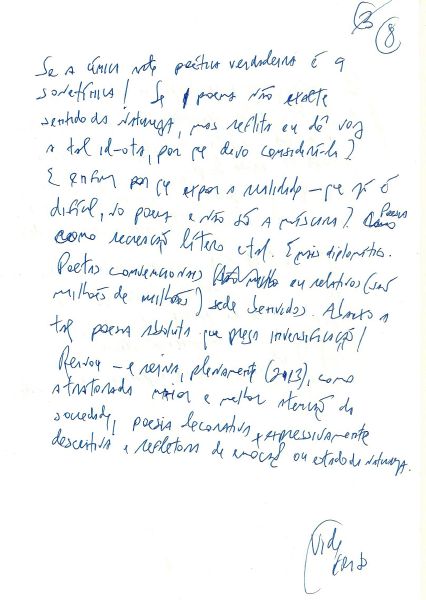 8
Se a única nota poética verdadeira é a
sonetífica! Se poema não exalte
sentido da natureza, mas reflita ou dê voz
a tal, por que devo considerá-la?
E enfim por que expor a realidade – que já é
difícil, no poema e não só a máscara? Poesia
como recreação lítero etal. É mais diplomático.
Poetas convencionais ou relativos (são
milhões de milhões) sede benvindos. Abaixo a
tal poesia absoluta que prega inversificação!
Reinou – e reina, plenamente (2013), como
a maior e melhor atenção da
sociedade, poesia decorativa expressivamente
descritiva e refletora de emoção ou estado da natureza.